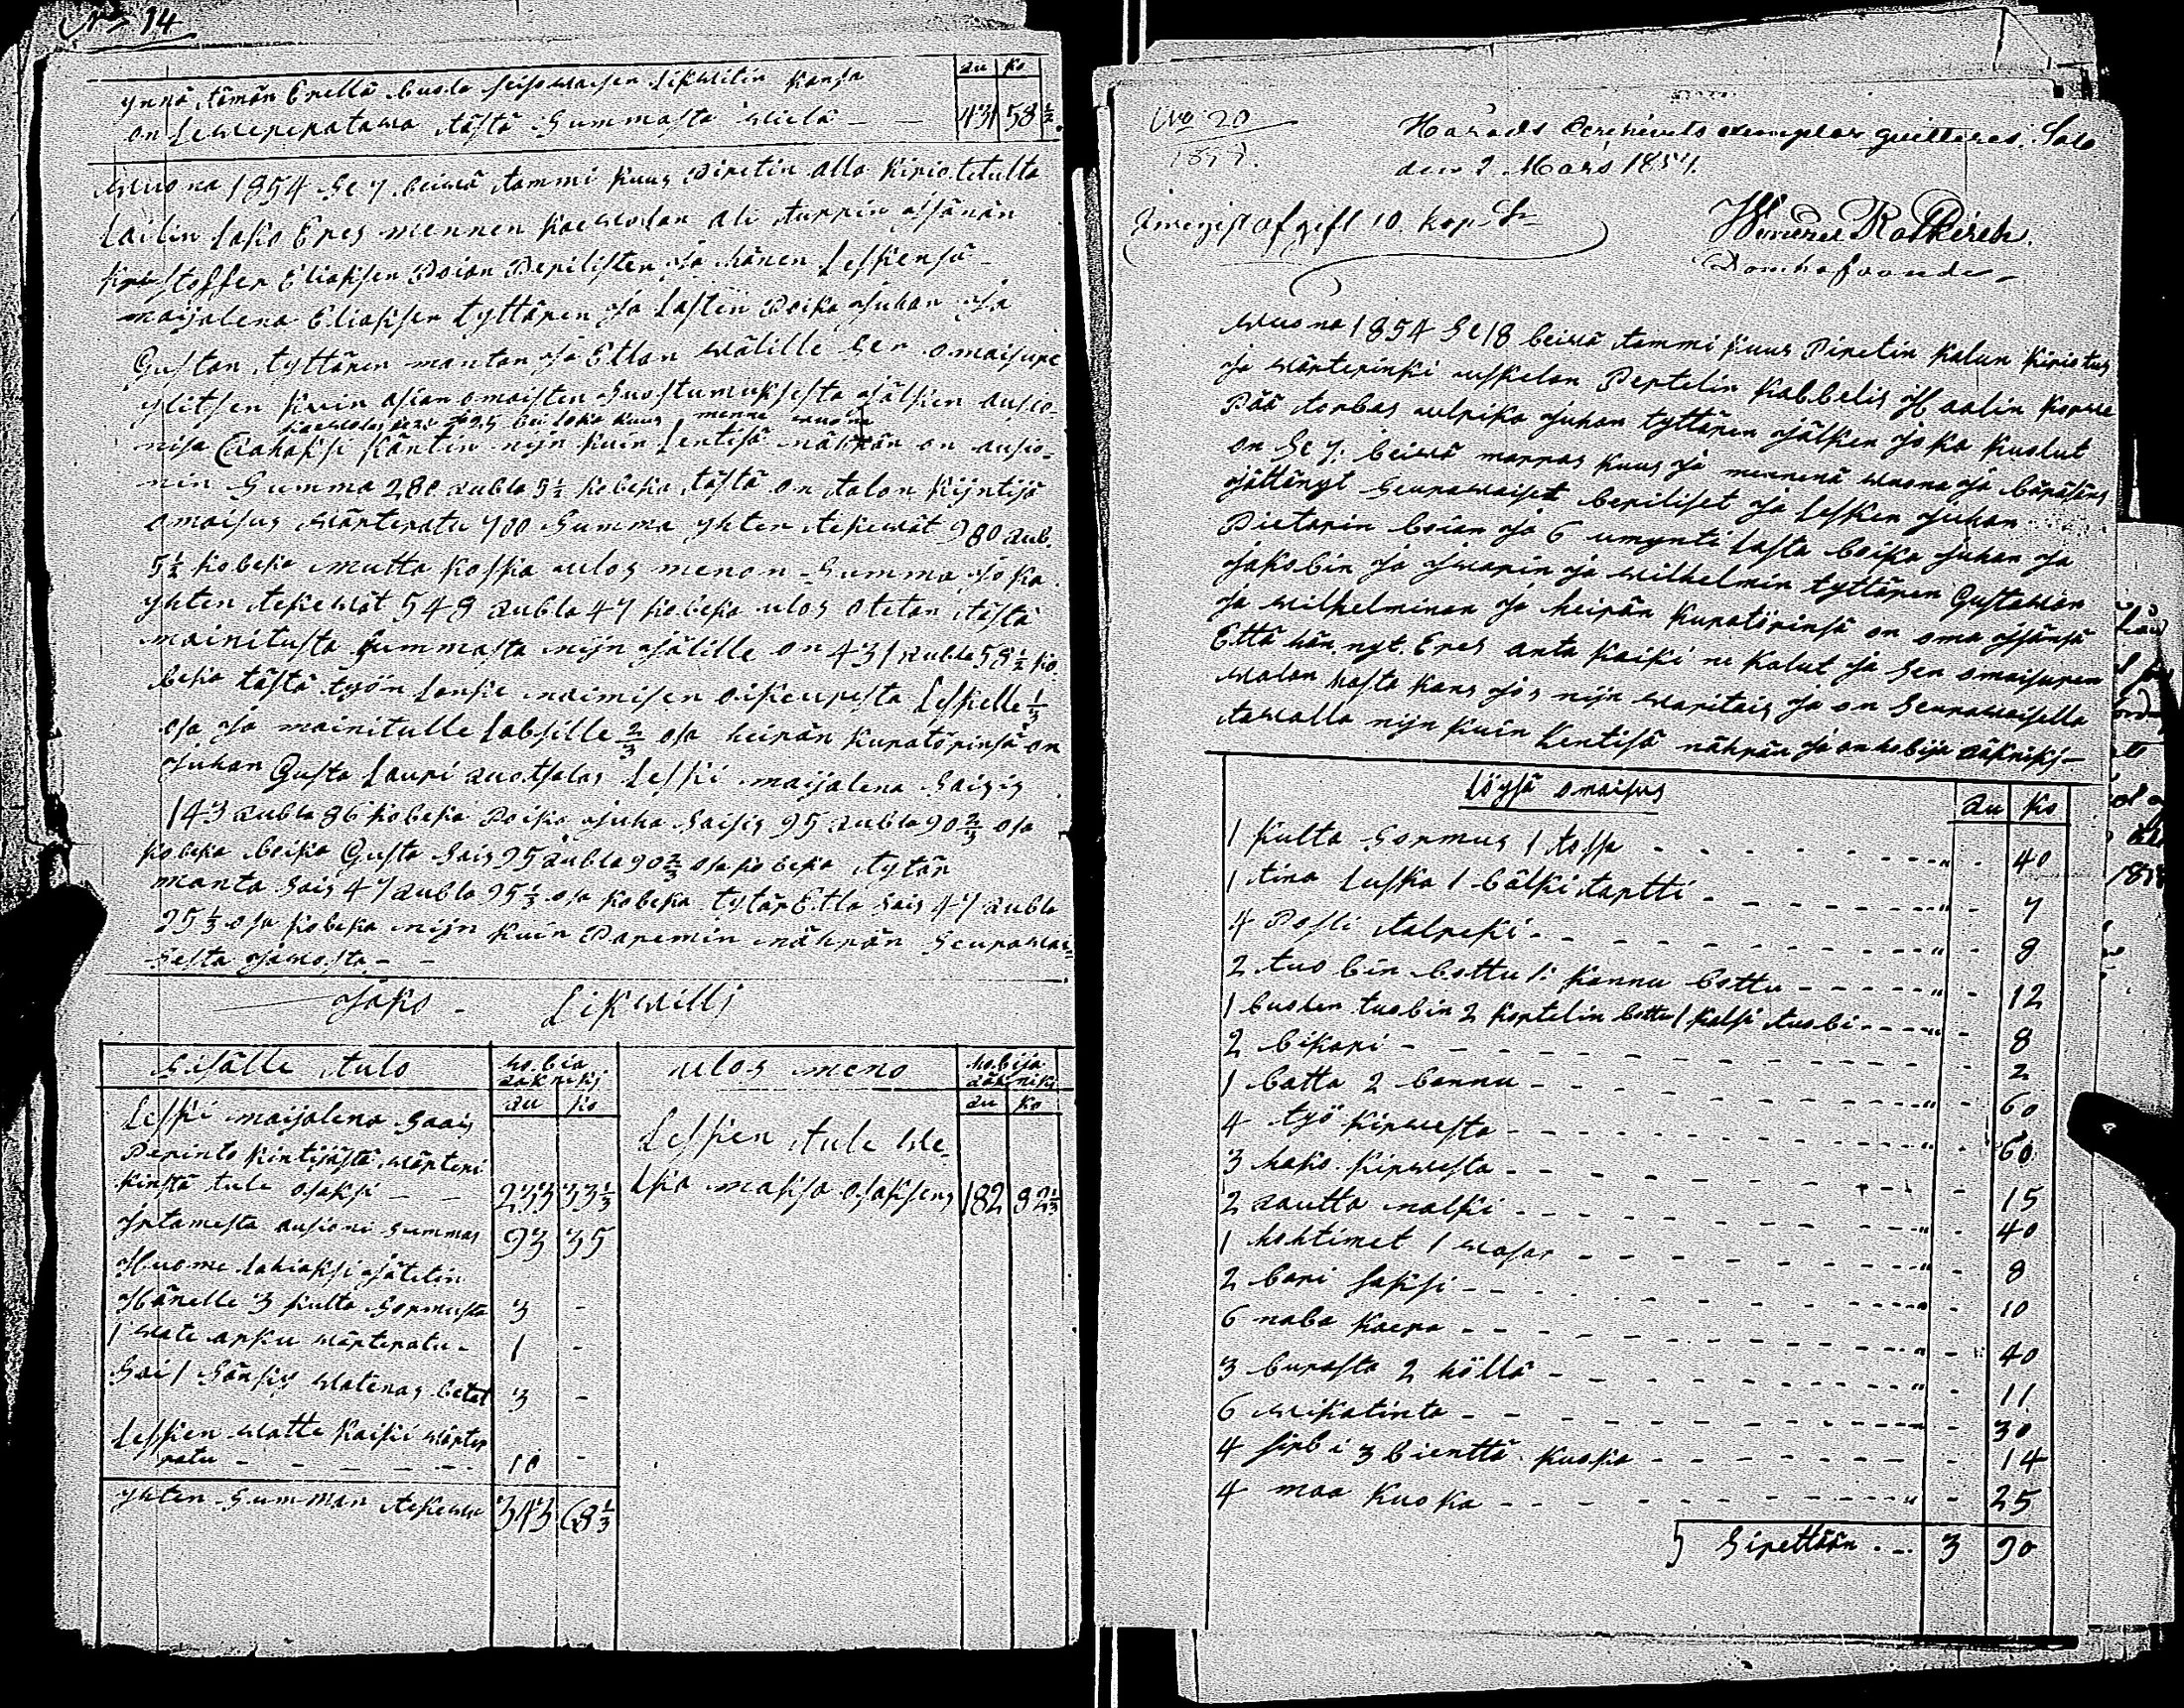 No 14
ru ko
ynnä tämän Erellä buola seisowaisen likwitin kansa
on lewereratawa tästä Summasta wielä — — 431 58 ½
wuona 1854 Se 7 beiwä tammi kuus Piretin alla kiriotetulta
Lailin Jako Eres mennen
Kristoffer Eliaksen Poian Perilisten ja hänen Leskensä
maijalena Eliaksen tyttären ja lasten Poika Juhan ja
Gustan tyttären mantan ja Etlan wälille Sen omaisure
ylitsen kuin asian omaisten Suostumuksesta jälken ausio-
25 bei loka kuus menne wuona
nisa Rahaksi käntin nijn kuin Lentisä nähtän on ausio-
nin Summa 280 rubla 5½ kobeka tästä on talon kijntijä
omaisus wärteratu 700 Summa yhten tekewät 980 rub.
5½ kobeka mutta koska ulos menon Summa joka
yhten tekewät 548 rubla 47 kobeka ulos otetan tästä
mainitusta Summasta nijn jälille on 431 rubla 58½ ko-
beka tästä työn lanke naimisen oikeuresta Leskelle ⅓
osa ja mainitulle labsille ⅔ osa heirän kuratörinsä on
Juhan Gusta Lauri ruotsalas Leski maijalena Saisis
143 rubla 86 kobeka Poika Juha Saisis 95 rubla 90 ⅔ osa
kobeka boika Gusta Sais 95 rubla 90 ⅔ osa kobeka tytär
manta Sais 47 rubla 95 ⅓ osa kobeka tytär Etla Sais 47 rubla
95 ⅓ osa kobeka nijn kuin Paremin nährän Seurawai-
sesta jawosta — —
Jako - Likwilli
Sisälle tulo hobia räkniksi ulos meno hobija räkniksi
ru ko ru ko
Leski maijalena Saais
Perinto kintijästä wärteri
kinstä tule osaksi — — 233 33⅓
Leskien tule we-
lka maksa osaksens 182 82⅓
Irtamesta ausioni Summas 93 35
Huome lahiaksi jätetin
Hänelle 3 kulta Sormusta 3 -
1 wate arku wärteratu - 1 -
Sai 1 Sänkys watenas betat 3 -
Leskien watte kaikki wärter
ratu - - - - - 10 -
yhten Summan tekewä 343 68⅓
No 20
1854.
Härads Archivets exemplar quitteras. Salo
den 2 Mars 1854.
afgift 10. kop Sr
Rotkirch
Domhafvande
wuona 1854 Se 18 beiwä tammi kuus Piretin kalun kiriotus
ja wärterinki uskelan Pertelin kabbelis Haalin korwe
Pää torbas ulrika Juhan tyttären jälken joka kuolut
on Se 7. beiwä marras kuus ja mennenä wuona ja bäräsäns
jättänyt Seurawaiset beriliset ja Lesken Juhan
Pietarin boian ja 6 umynti lasta boika Juhan ja
Jakobin ja Iwarin ja wilhelmin tyttären Gustawan
ja wilhelminan ja heirän kuratörinsä on oma Isänsä
Että hän nyt Eres anta kaiki ne kalut ja Sen omaisuren
walan kasta kans jos nijn waritais ja on Seurawaisella
tawalla nijn kuin Lentisä nährän ja on hobija räkniksi —
Löysä omaisus ru ko
1 kulta Sormus 1 tossa - - - " - 40
1 tina luska 1 bälki tartti - - - " - 7
4 Posli talreki - - - " - 8
2 tuobin bottu 1 kannu bottu - - - " - 12
1 buolen tuobin 2 kortelin bottu 1 kalsi tuobi - - - " - 8
2 bikari - - - 2
1 batta 2 bannu - - - " - 60
4 työ kirwesta - - - " - 60
3 hako kirwesta - - - 15
2 rautta nalkki - - - " - 40
1 hohtimet 1 wasar - - - " - 8
2 bari saksi - - - " - 10
6 naba kaera - - - " - 40
3 burasta 2 höllä - - - " - 11
6 wikatinta - - - " - 30
4 sirbi 3 bienttä kuoka - - - 14
4 maa kuoka - - - " - 25
Sirettään - - 3 90